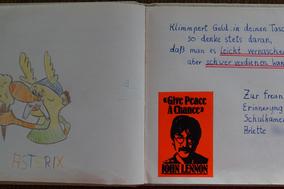 ASTERIX
Klimmpert Geld in deinen Tasc
so denke stets daran,
daß man es leicht vernaschen
aber schwer verdienen kan
«Give Peace
A Chance»
JOHN LENNON
Zur freun
Erinnerung
Schulkamer